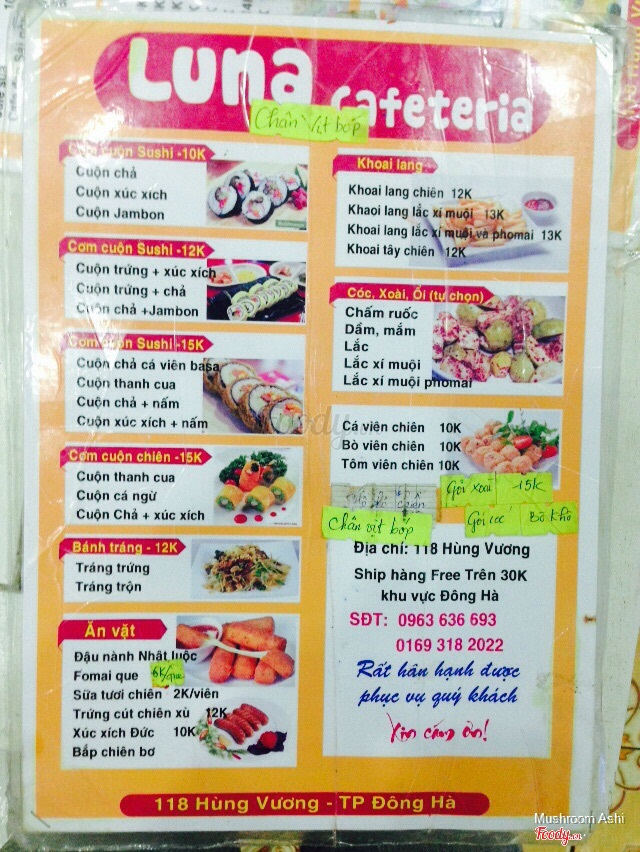 Luna
cafeteria
Chân vịt bóp
Cơm cuộn Sushi -10K
Cuộn chả
Cuộn xúc xích
Cuộn Jambon
Cơm cuộn Sushi -12K
Cuộn trứng + xúc xích
Cuộn trứng + chả
Cuộn chả +Jambon
Cơm cuộn Sushi -15K
Cuộn chả cá viên basa
Cuộn thanh cua
Cuộn chả + nấm
Cuộn xúc xích + nấm
Cơm cuộn chiên -15K
Cuộn thanh cua
Cuộn cá ngừ
Cuộn Chả + xúc xích
Bánh tráng - 12K
Tráng trứng
Tráng trộn
Ăn vặt
Đậu nành Nhật luộc
Fomai que 6K/que
Sữa tươi chiên 2K/viên
Trứng cút chiên xù 12K
Xúc xích Đức 10K
Bắp chiên bơ
Khoai lang
Khoai lang chiên 12K
Khaoi lang lắc xí muội 13K
Khoai lang lắc xí muội và phomai 13K
Khoai tây chiên 12K
Cóc, Xoài, Ổi (tự chọn)
Chấm ruốc
Dầm, mắm
Lắc
Lắc xí muội
Lắc xí muội phomai
Cá viên chiên 10K
Bò viên chiên 10K
Tôm viên chiên 10K
Gỏi xoài 15K
Gỏi cóc Bò khô
Chân vịt bóp
Địa chỉ: 118 Hùng Vương
Ship hàng Free Trên 30K
khu vực Đông Hà
SĐT: 0963 636 693
0169 318 2022
Rất hân hạnh được
phục vụ quý khách
Xin cảm ơn!
118 Hùng Vương - TP Đông Hà
Mushroom Ashi
Foody.vn